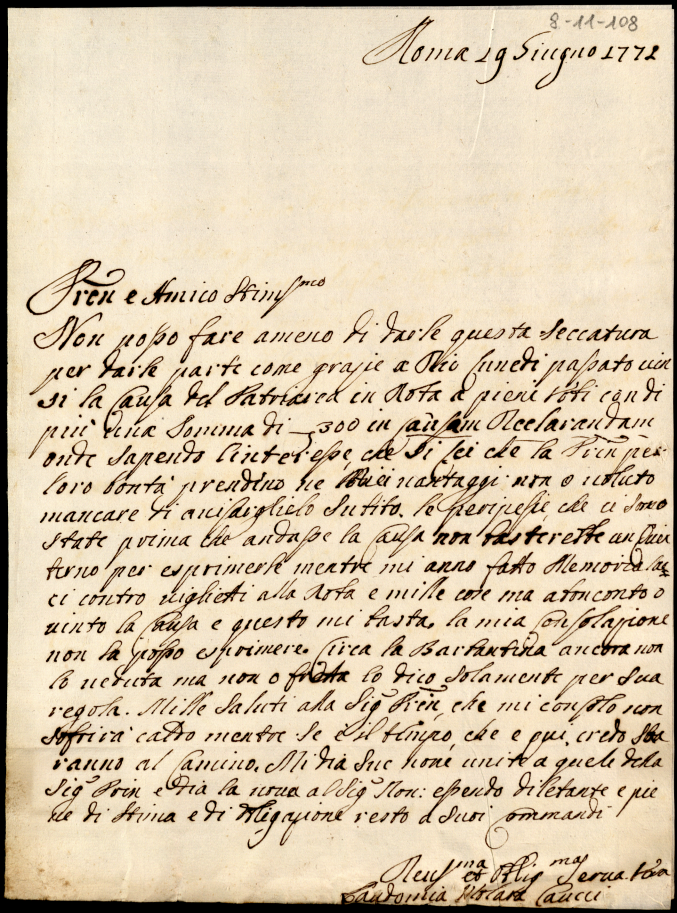 8-11-108
Roma 19 Giugno 1771
Pren e Amico Stimsmo
Non posso fare ameno di darle questa seccatura
per darle parte come grazie a Dio Lunedi passato vin
si la Causa del Patriarca in Rota a pieni voti con di
più una Somma di 300 in causam Reclarandam
onde sapendo l'interesse che si lei che la Prin per
loro bontà prendino ne miei vantaggi non o voluto
mancare di avisarglielo subito. le peripezie che ci sono
state prima che andasse la Causa non basterebbe un Quin
terno per esprimerle mentre mi anno fatto Memoriali
ci contro viglietti alla Rota e mille cose ma a bonconto o
vinto la Causa e questo mi basta, la mia Consolazione
non la posso esprimere. Circa la Barbantina ancora non
lo veduta ma non o fretta lo dico solamente per sua
regola. Mille Saluti alla Siga Prin, che mi consolo non
soffrirà caldo mentre se è il tempo che e qui, credo sta
ranno al Camino. Mi dia sue nove unite a quele della
Siga Prin e dia la nova al Sigr Mon: essendo diletante e pie
ne di Stima e di Obligazione resto a Suoi Commandi
Devma et Obligma Serva Vera
Laudomia Caucci